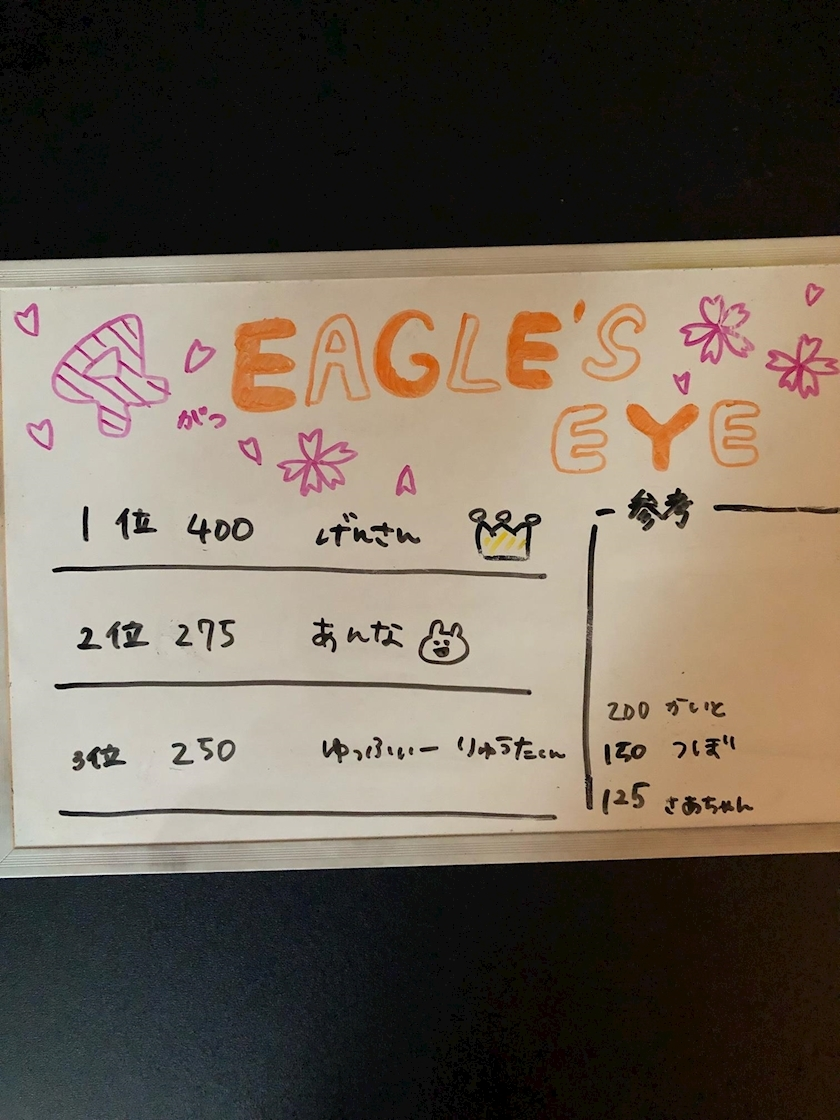 4がつ
EAGLE'S
EYE
1位 400 げんさん
2位 275 あんな
3位 250 ゆっふぃー りゅうたくん
参考
200 かいと
150 つぼり
125 さあちゃん